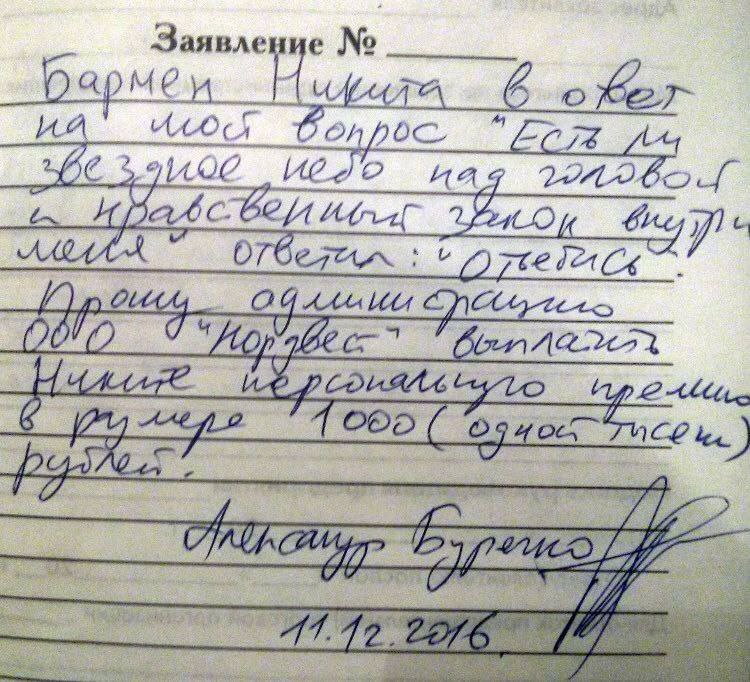 Заявление № ________
Бармен Никита в ответ
на мой вопрос "Есть ли
звездное небо над головой
и нравственный закон внутри
меня" ответил: "Отъебись".
Прошу администрацию
ООО "Нордвест" выплатить
Никите персональную премию
в размере 1000 (одной тысячи)
рублей.
Александр
11.12.2016.